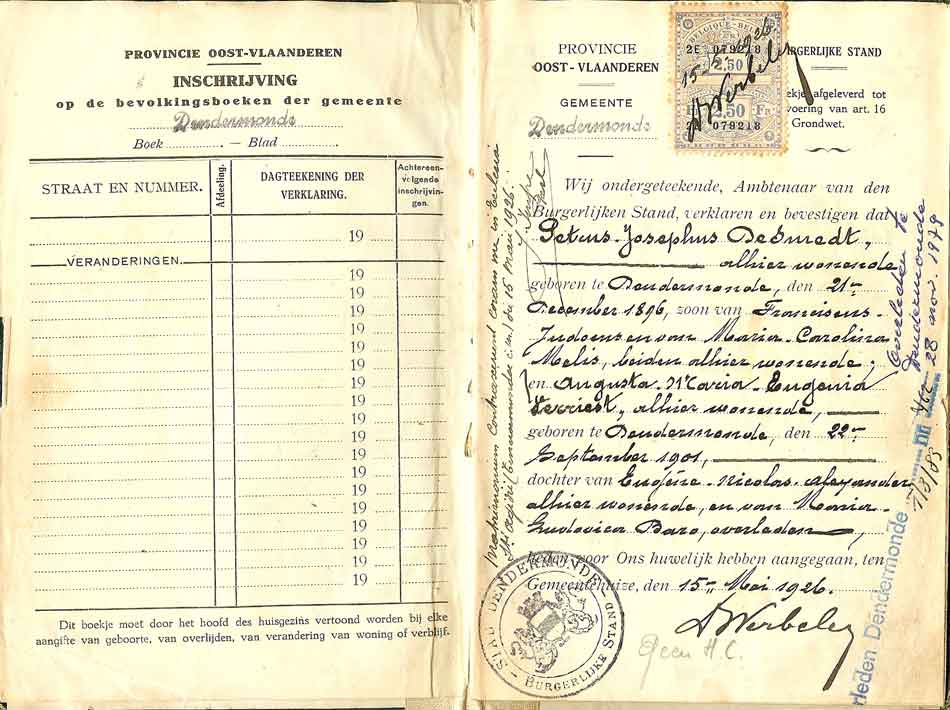 PROVINCIE OOST-VLAANDEREN
INSCHRIJVING
op de bevolkingsboeken der gemeente
Dendermonde
Boek — Blad
STRAAT EN NUMMER.
Afdeeling.
DAGTEEKENING DER
VERKLARING.
Achtereen-
volgende
inschrijvin-
gen.
19
VERANDERINGEN.
19
19
19
19
19
19
19
19
19
19
19
19
19
19
19
19
19
19
Dit boekje moet door het hoofd des huisgezins vertoond worden bij elke
aangifte van geboorte, van overlijden, van verandering van woning of verblijf.
PROVINCIE
OOST-VLAANDEREN
GEMEENTE
Dendermonde
BELGIQUE-BEL
2E 079218
2.50
2.50 Fr
079218
15-5-1926
AWerbeley
URGERLIJKE STAND
ekje afgeleverd tot
voering van art. 16
Grondwet.
Wij ondergeteekende, Ambtenaar van den
Burgerlijken Stand, verklaren en bevestigen dat
Petrus-Josephus DeSmedt,
alhier wonende
geboren te Dendermonde, den 21en
December 1896, zoon van Franciscus-
Judocus en van Maria-Carolina
Melis, beiden alhier wonende;
en Augusta-Maria-Eugenia
Verriest, alhier wonende,
geboren te Dendermonde, den 22en
September 1901,
dochter van Eugène-Nicolas-Alexander
alhier wonende, en van Maria-
Ludovica Baro, overleden,
heden voor Ons huwelijk hebben aangegaan, ten
Gemeentehuize, den 15en Mei 1926.
AWerbeley
Geen H.C.
STAD DENDERMONDE
BURGERLIJKE STAND
matrimonium contraxerunt coram me in Ecclesia
die 15 Mai 1926.
Overleden te
Dendermonde
28 nov. 1979
rleden Dendermonde
7/3/85